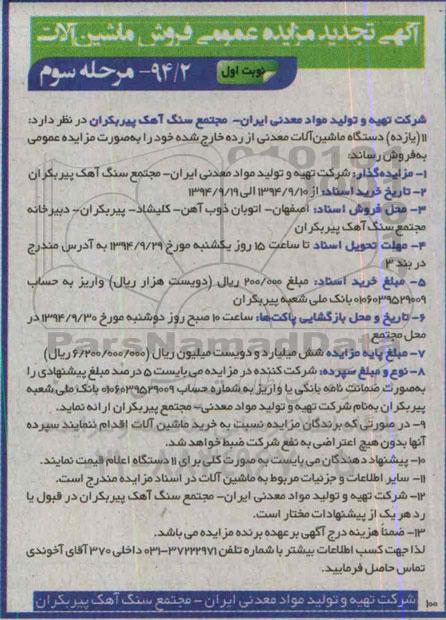 آگهی تجدید مزایده عمومی فروش ماشین آلات
نوبت اول
۹۴/۲- مرحله سوم
شرکت تهیه و تولید مواد معدنی ایران- مجتمع سنگ آهک پیربکران در نظر دارد:
۱۱ (یازده) دستگاه ماشین‌آلات معدنی از رده خارج شده خود را به‌صورت مزایده عمومی
به‌فروش رساند.
۱- مزایده‌گذار: شرکت تهیه و تولید مواد معدنی ایران- مجتمع سنگ آهک پیربکران
۲- تاریخ خرید اسناد: از ۱۳۹۴/۹/۱۰ الی ۱۳۹۴/۹/۱۹
۳- محل فروش اسناد: اصفهان- اتوبان ذوب آهن- کلیشاد- پیربکران- دبیرخانه
مجتمع سنگ آهک پیربکران
۴- مهلت تحویل اسناد تا ساعت ۱۵ روز یکشنبه مورخ ۱۳۹۴/۹/۲۹ به آدرس مندرج
در بند ۳
۵- مبلغ خرید اسناد: مبلغ ۲۰۰/۰۰۰ ریال (دویست هزار ریال) واریز به حساب
۰۱۰۶۰۳۹۵۲۹۰۰۹ بانک ملی شعبه پیربکران
۶- تاریخ و محل بازگشایی پاکت‌ها: ساعت ۱۰ صبح روز دوشنبه مورخ ۱۳۹۴/۹/۳۰ در
محل مجتمع
ParsNamadData
۷- مبلغ پایه مزایده شش میلیارد و دویست میلیون ریال (۶/۲۰۰/۰۰۰/۰۰۰ ریال)
۸- نوع و مبلغ سپرده: شرکت کننده در مزایده می بایست ۵ درصد مبلغ پیشنهادی را
به‌صورت ضمانت نامه بانکی یا واریز به شماره حساب ۰۱۰۶۰۳۹۵۲۹۰۰۹ بانک ملی شعبه
پیربکران به‌نام شرکت تهیه و تولید مواد معدنی- مجتمع پیربکران ارائه نماید.
۹- در صورتی که برندگان مزایده نسبت به خرید ماشین آلات اقدام ننمایند سپرده
آنها بدون هیچ اعتراضی به نفع شرکت ضبط خواهد شد.
۱۰- پیشنهاد دهندگان می بایست به صورت کلی برای ۱۱ دستگاه اعلام قیمت نمایند.
۱۱- سایر اطلاعات و جزئیات مربوط به ماشین آلات در اسناد مزایده مندرج است.
۱۲- شرکت تهیه و تولید مواد معدنی ایران- مجتمع سنگ آهک پیربکران در قبول یا
رد هر یک از پیشنهادات مختار است.
۱۳- ضمناً هزینه درج آگهی بر عهده برنده مزایده می باشد.
لذا جهت کسب اطلاعات بیشتر با شماره تلفن ۳۷۲۲۲۹۷۱-۰۳۱ داخلی ۳۷۰ آقای آخوندی
تماس حاصل فرمایید.
شرکت تهیه و تولید مواد معدنی ایران - مجتمع سنگ آهک پیربکران
۱۰۰